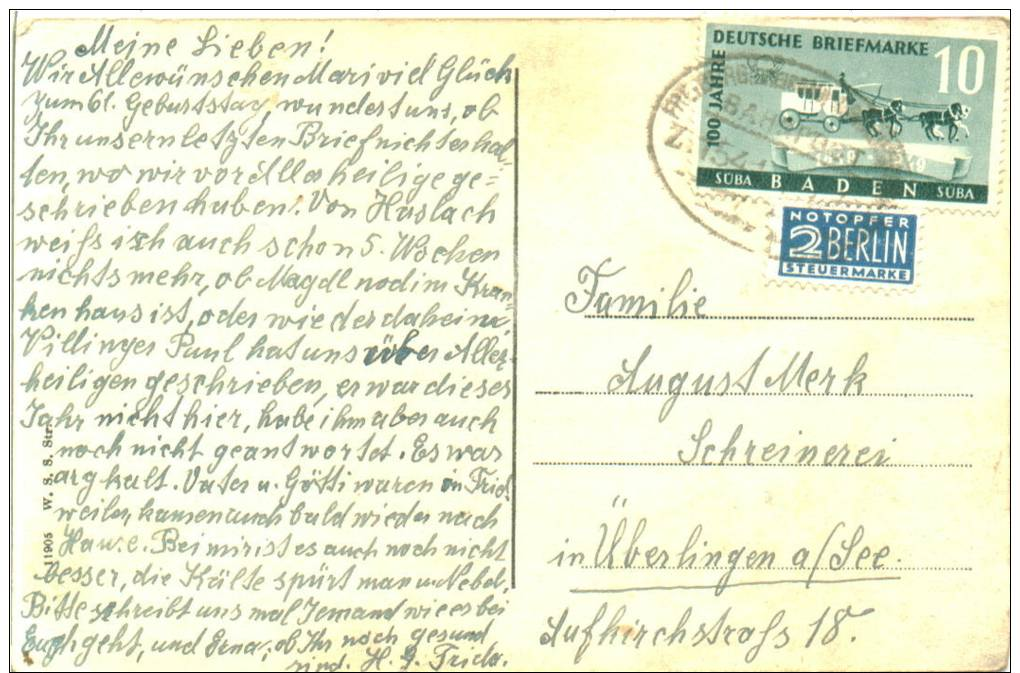 Meine Lieben!
Wir Alle wünschen Mari viel Glück
zum 61. Geburtstag, wundert uns, ob
Ihr unsern letzten Brief nicht erhal-
ten, wo wir vor Alle heilige ge=
schrieben haben. Von Haslach
weiß ich auch schon 5. Wochen
nichts mehr, ob Magdl noch im Kran-
kenhaus ist, oder wieder daheim,
Villinger Paul hat uns über Aller-
heiligen geschrieben, er war dieses
Jahr nicht hier, habe ihm aber auch
noch nicht geantwortet. Es war
arg kalt. Vater u. Götti waren in Frid-
weiler, kamen auch bald wieder nach
Hause. Bei mir ist es auch noch nicht
besser, die Kälte spürt man u. Nebel,
Bitte schreibt uns mal Jemand wie es bei
Euch geht, und Erna, ob Ihr noch gesund
sind. H. G. Frida.
11905 W. S. S. Str.
100 JAHRE
DEUTSCHE BRIEFMARKE
10
SÜBA BADEN SÜBA
BAHNPOST
Z
NOTOPFER
2 BERLIN
STEUERMARKE
Familie
August Merk
Schreinerei
in Überlingen a/See.
Aufkirchstraß 18.